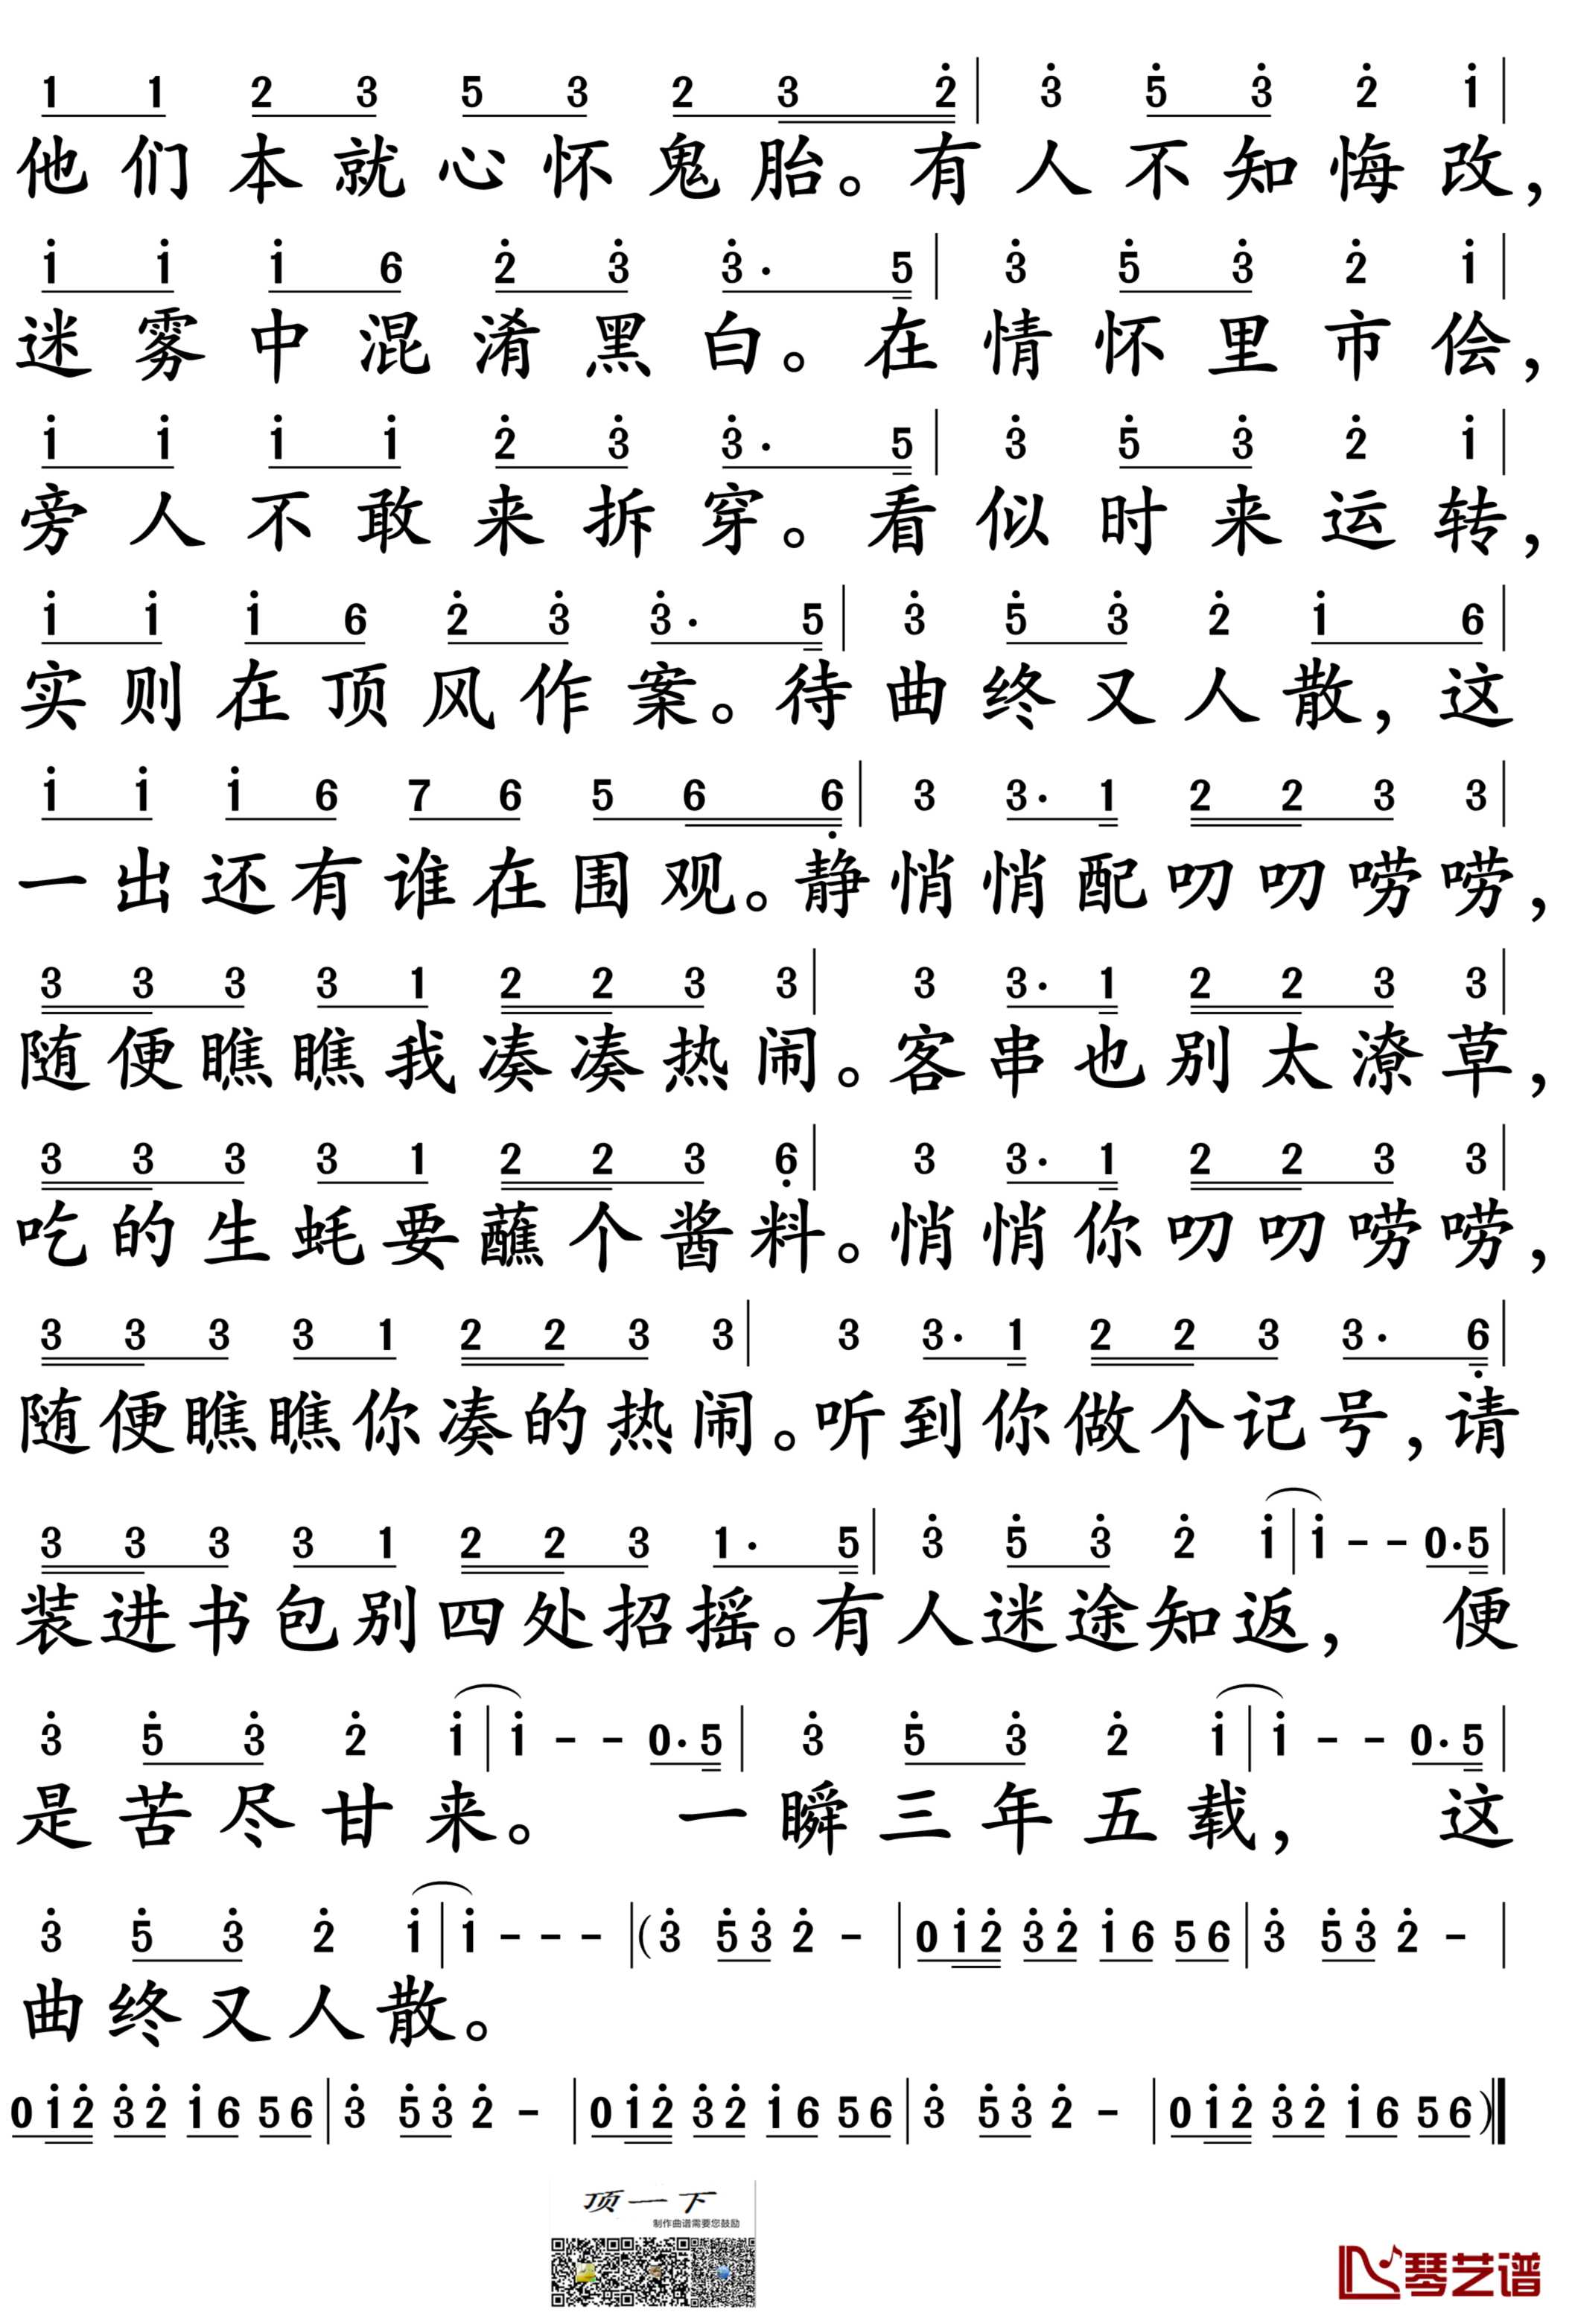 1 1 2 3 5 3 2 3 2̇ | 3̇ 5̇ 3̇ 2̇ i̇ |
他们本就心怀鬼胎。有人不知悔改，
i̇ i̇ i̇ 6 2̇ 3̇ 3̇· 5 | 3̇ 5̇ 3̇ 2̇ i̇ |
迷雾中混淆黑白。在情怀里市侩，
i̇ i̇ i̇ i̇ 2̇ 3̇ 3̇· 5 | 3̇ 5̇ 3̇ 2̇ i̇ |
旁人不敢来拆穿。看似时来运转，
i̇ i̇ i̇ 6 2̇ 3̇ 3̇· 5 | 3̇ 5̇ 3̇ 2̇ i̇ 6 |
实则在顶风作案。待曲终又人散，这
i̇ i̇ i̇ 6 7 6 5 6 6̣ | 3 3· 1 2 2 3 3 |
一出还有谁在围观。静悄悄配叨叨唠唠，
3 3 3 3 1 2 2 3 3 | 3 3· 1 2 2 3 3 |
随便瞧瞧我凑凑热闹。客串也别太潦草，
3 3 3 3 1 2 2 3 6̣ | 3 3· 1 2 2 3 3 |
吃的生蚝要蘸个酱料。悄悄你叨叨唠唠，
3 3 3 3 1 2 2 3 3 | 3 3· 1 2 2 3 3· 6̣ |
随便瞧瞧你凑的热闹。听到你做个记号，请
3 3 3 3 1 2 2 3 1· 5 | 3̇ 5̇ 3̇ 2̇ i̇ | i̇ - - 0·5 |
装进书包别四处招摇。有人迷途知返， 便
3̇ 5̇ 3̇ 2̇ i̇ | i̇ - - 0·5 | 3̇ 5̇ 3̇ 2̇ i̇ | i̇ - - 0·5 |
是苦尽甘来。 一瞬三年五载， 这
3̇ 5̇ 3̇ 2̇ i̇ | i̇ - - - | (3̇ 5̇3̇ 2̇ - | 0i̇2̇ 3̇2̇ i̇6 56 | 3̇ 5̇3̇ 2̇ - |
曲终又人散。
0i̇2̇ 3̇2̇ i̇6 56 | 3̇ 5̇3̇ 2̇ - | 0i̇2̇ 3̇2̇ i̇6 56 | 3̇ 5̇3̇ 2̇ - | 0i̇2̇ 3̇2̇ i̇6 56 )‖
顶一下
制作曲谱需要您鼓励
琴艺谱